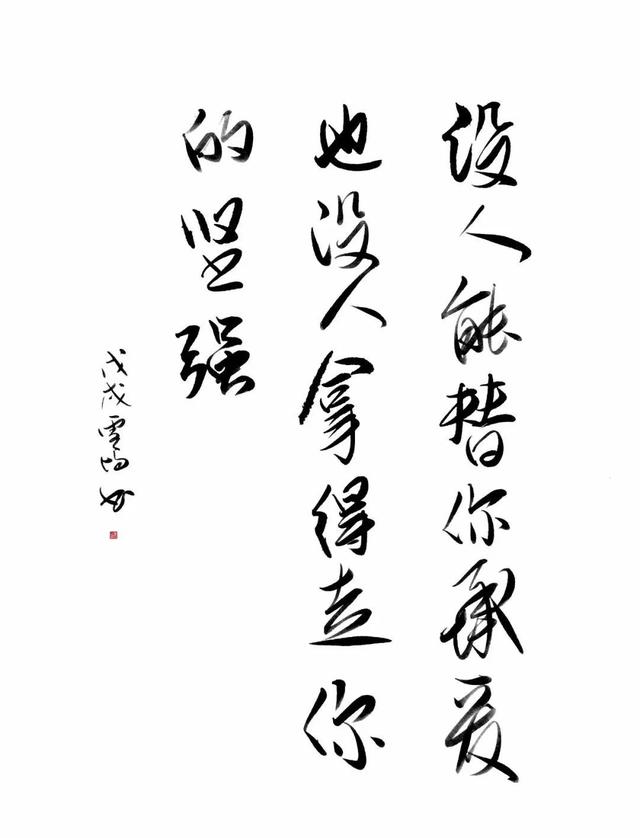 没人能替你承受
也没人拿得走你
的坚强
戊戌